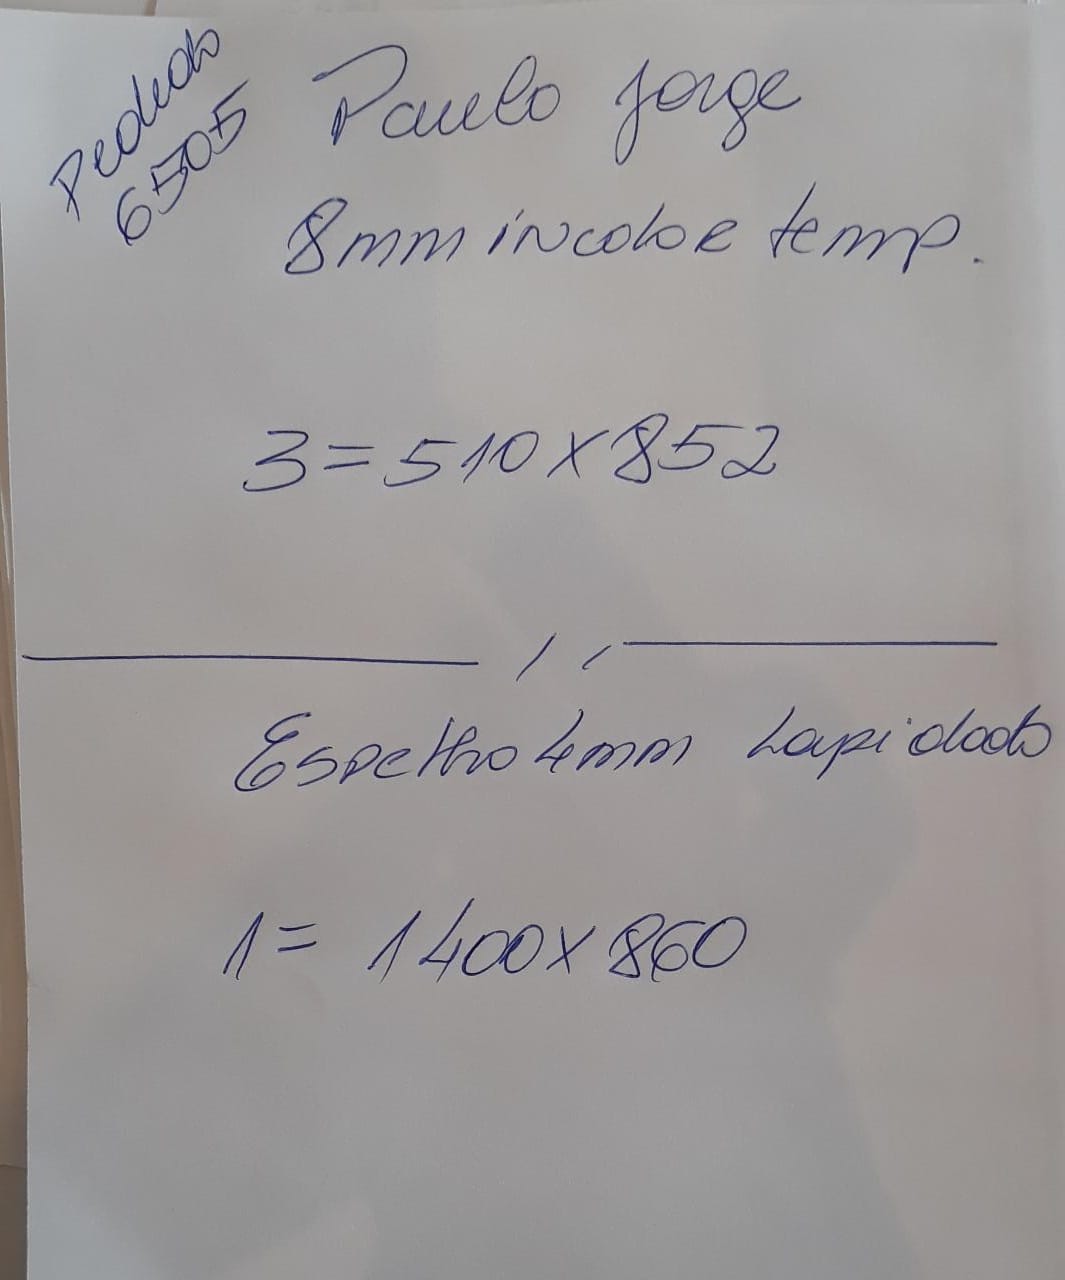 Pedido
6505
Paulo Jorge
8mm incolor temp.
3=510x852
Espelho 4mm Lapidado
1= 1400x860